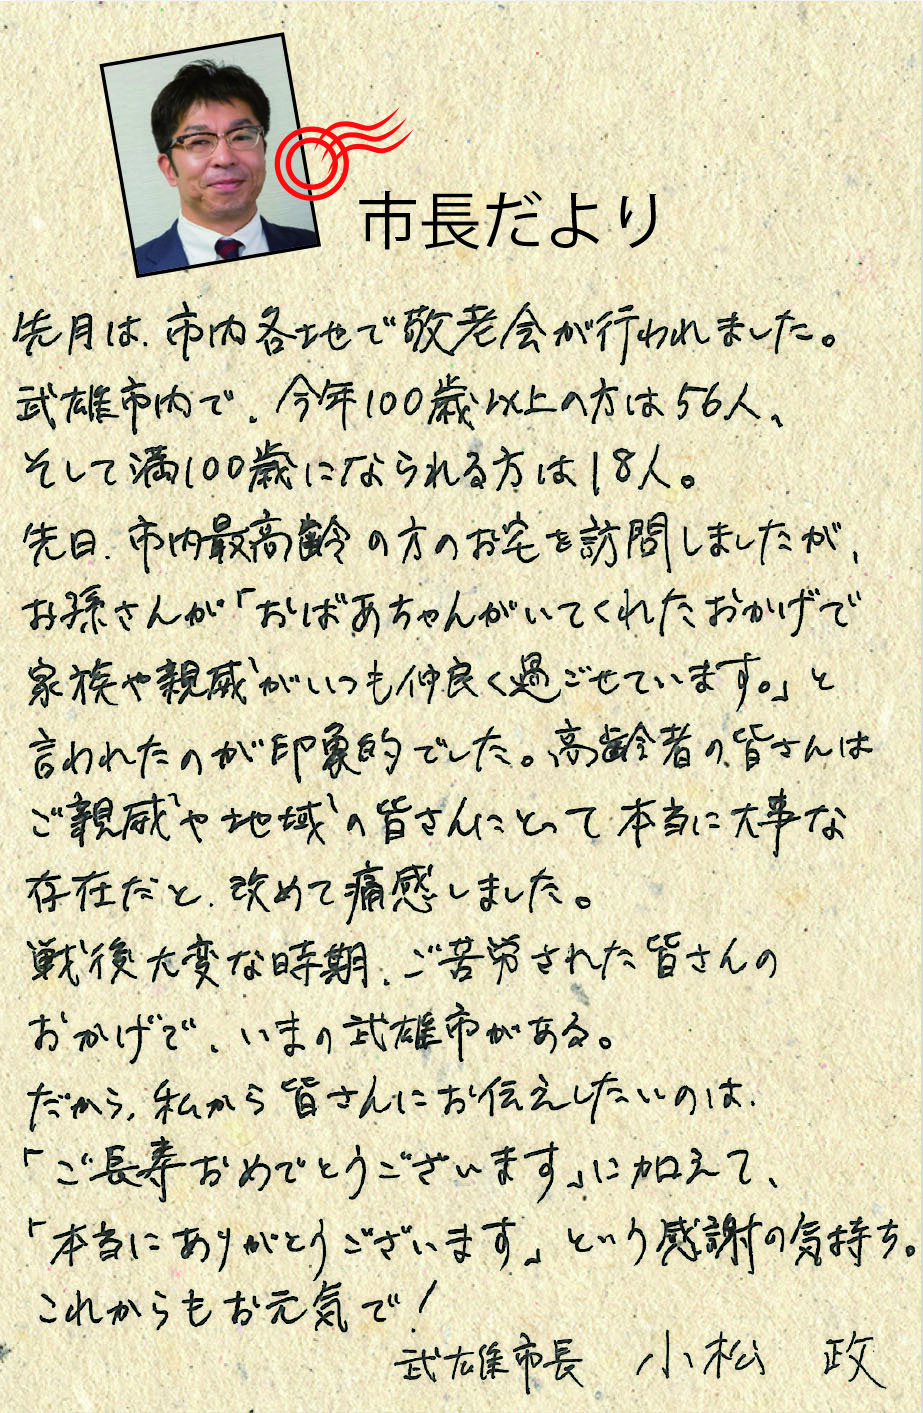 市長だより
先月は、市内各地で敬老会が行われました。
武雄市内で、今年100歳以上の方は56人、
そして満100歳になられる方は18人。
先日、市内最高齢の方のお宅を訪問しましたが、
お孫さんが「おばあちゃんがいてくれたおかげで
家族や親戚がいつも仲良く過ごせています。」と
言われたのが印象的でした。高齢者の皆さんは
ご親戚や地域の皆さんにとって本当に大事な
存在だと、改めて痛感しました。
戦後大変な時期、ご苦労された皆さんの
おかげで、いまの武雄市がある。
だから、私から皆さんにお伝えしたいのは、
「ご長寿おめでとうございます」に加えて、
「本当にありがとうございます」という感謝の気持ち。
これからもお元気で！
武雄市長 小松 政